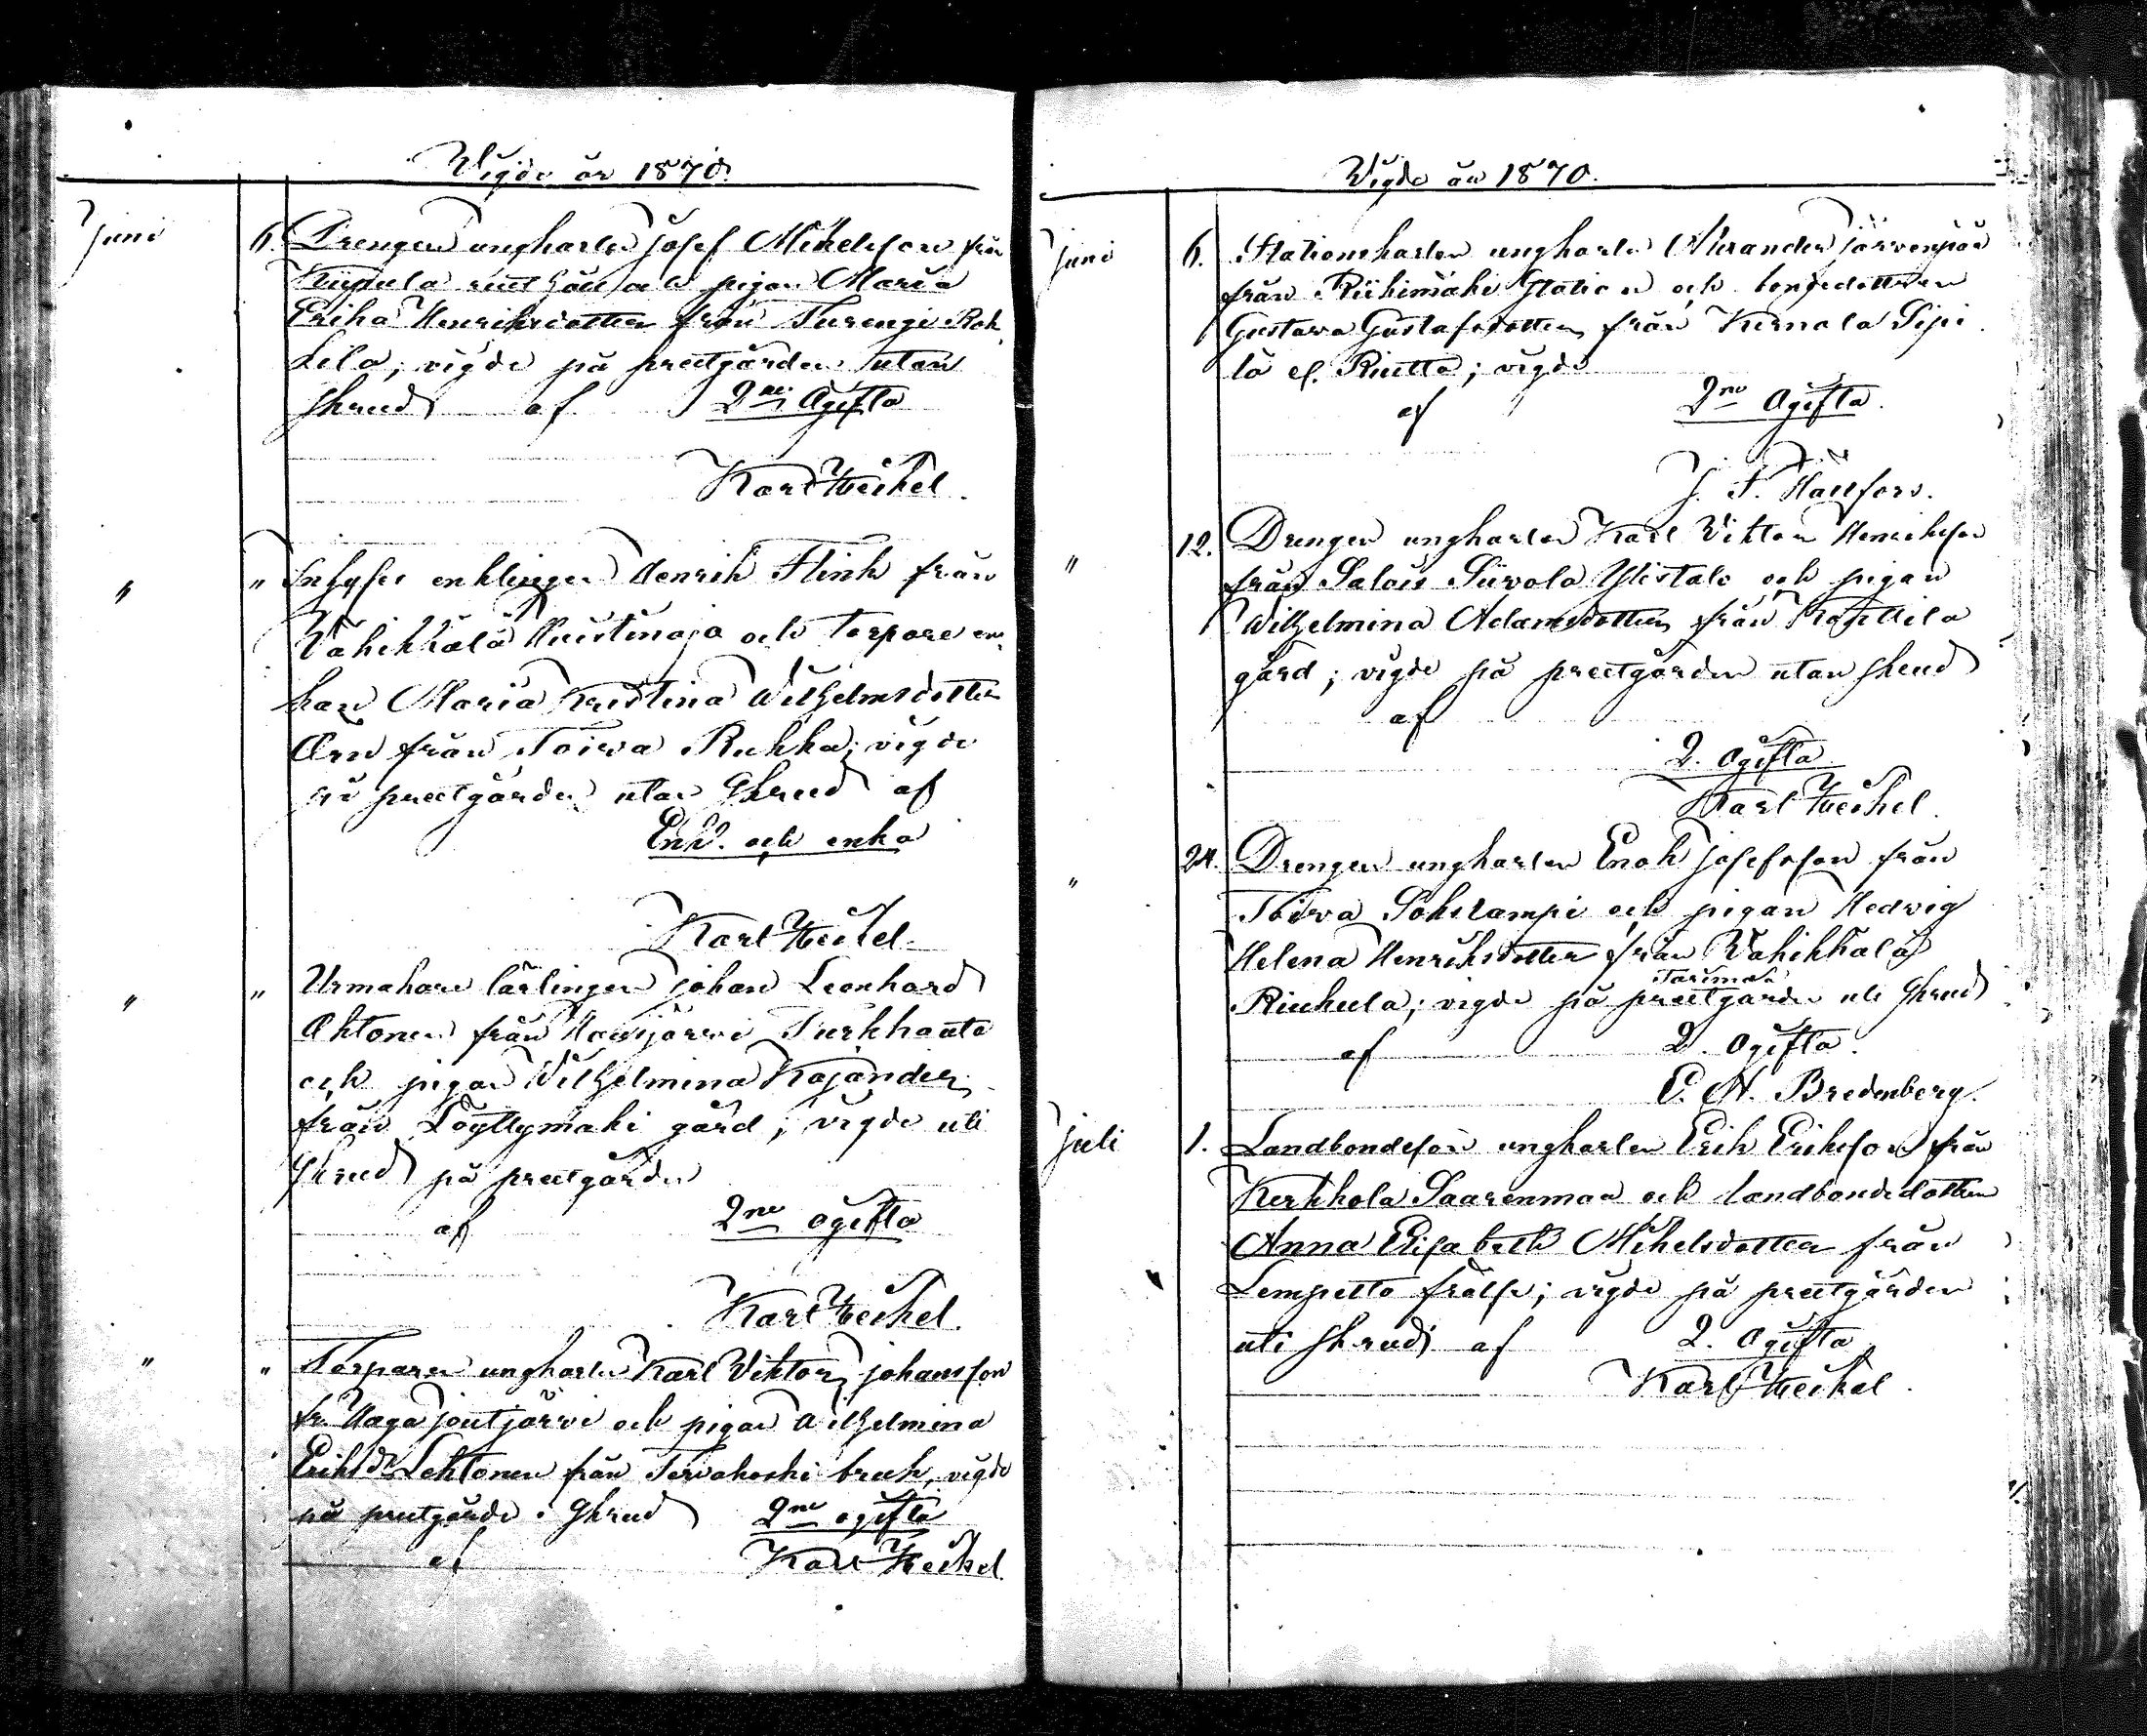 Vigde år 1870.
Juni 6. Drengen ungkarlen Josef Mikelsson från
rusthåll och pigan Maria
Erika Henriksdotter från Turengi Rek
kilä; vigde på prestgården utan
skrud af 2ne Ogifta
Karl Heikel.
" " Inhyses enklingen Henrik Flink från
Vähikkälä Kuistinoja och torpare en
kan Maria Kristina Wilhelmsdotter
Örn från Toiva Rukka; vigde
på prestgården utan skrud af
Enkl. och enka
Karl Heikel.
" " Urmakare lärlingen Johan Leonhard
Ahtonen från Hausjärvi Turkhauta
och pigan Wilhelmina Kajander
från Löyttymäki gård; vigde uti
skrud på prestgården
af 2ne ogifta
Karl Heikel.
" " Torparen ungkarlen Karl Viktor Johansson
fr. Haga Joutjärvi och pigan Wilhelmina
Eriksdr Lehtonen från Tervakoski bruk, vigde
på prestgården i skrud 2ne ogifta
af Karl Heikel.
Vigde år 1870.
Juni 6. Stationskarlen ungkarlen Alexander Järvenpää
från Riihimäki Station och
Gustava Gustafsdotter från Kernala Sipi
lä el. Riutta; vigde
af 2ne Ogifta.
J. F. Hällfors.
" 12. Drengen ungkarlen Karl Viktor Henriksson
från Salois Siivola Ylistalo och pigan
Wilhelmina Adamsdotter från Konttila
gård; vigde på prestgården utan skrud
af
2. Ogifta
Karl Heikel.
" 24. Drengen ungkarlen Enok Josefsson från
Toiva Sokslampi och pigan Hedvig
Helena Henriksdotter från Vähikkälä
Tarinmaa
Riukula; vigde på prestgården uti skrud
af 2. Ogifta.
C. N. Bredenberg.
Juli 1. Landbondeson ungkarlen Erik Eriksson från
Kerkkola Saarenmaa och landbondedottren
Anna Elisabeth Mikelsdotter från
Lempetto frälse; vigde på prestgården
uti skrud af 2. Ogifta
Karl Heikel.